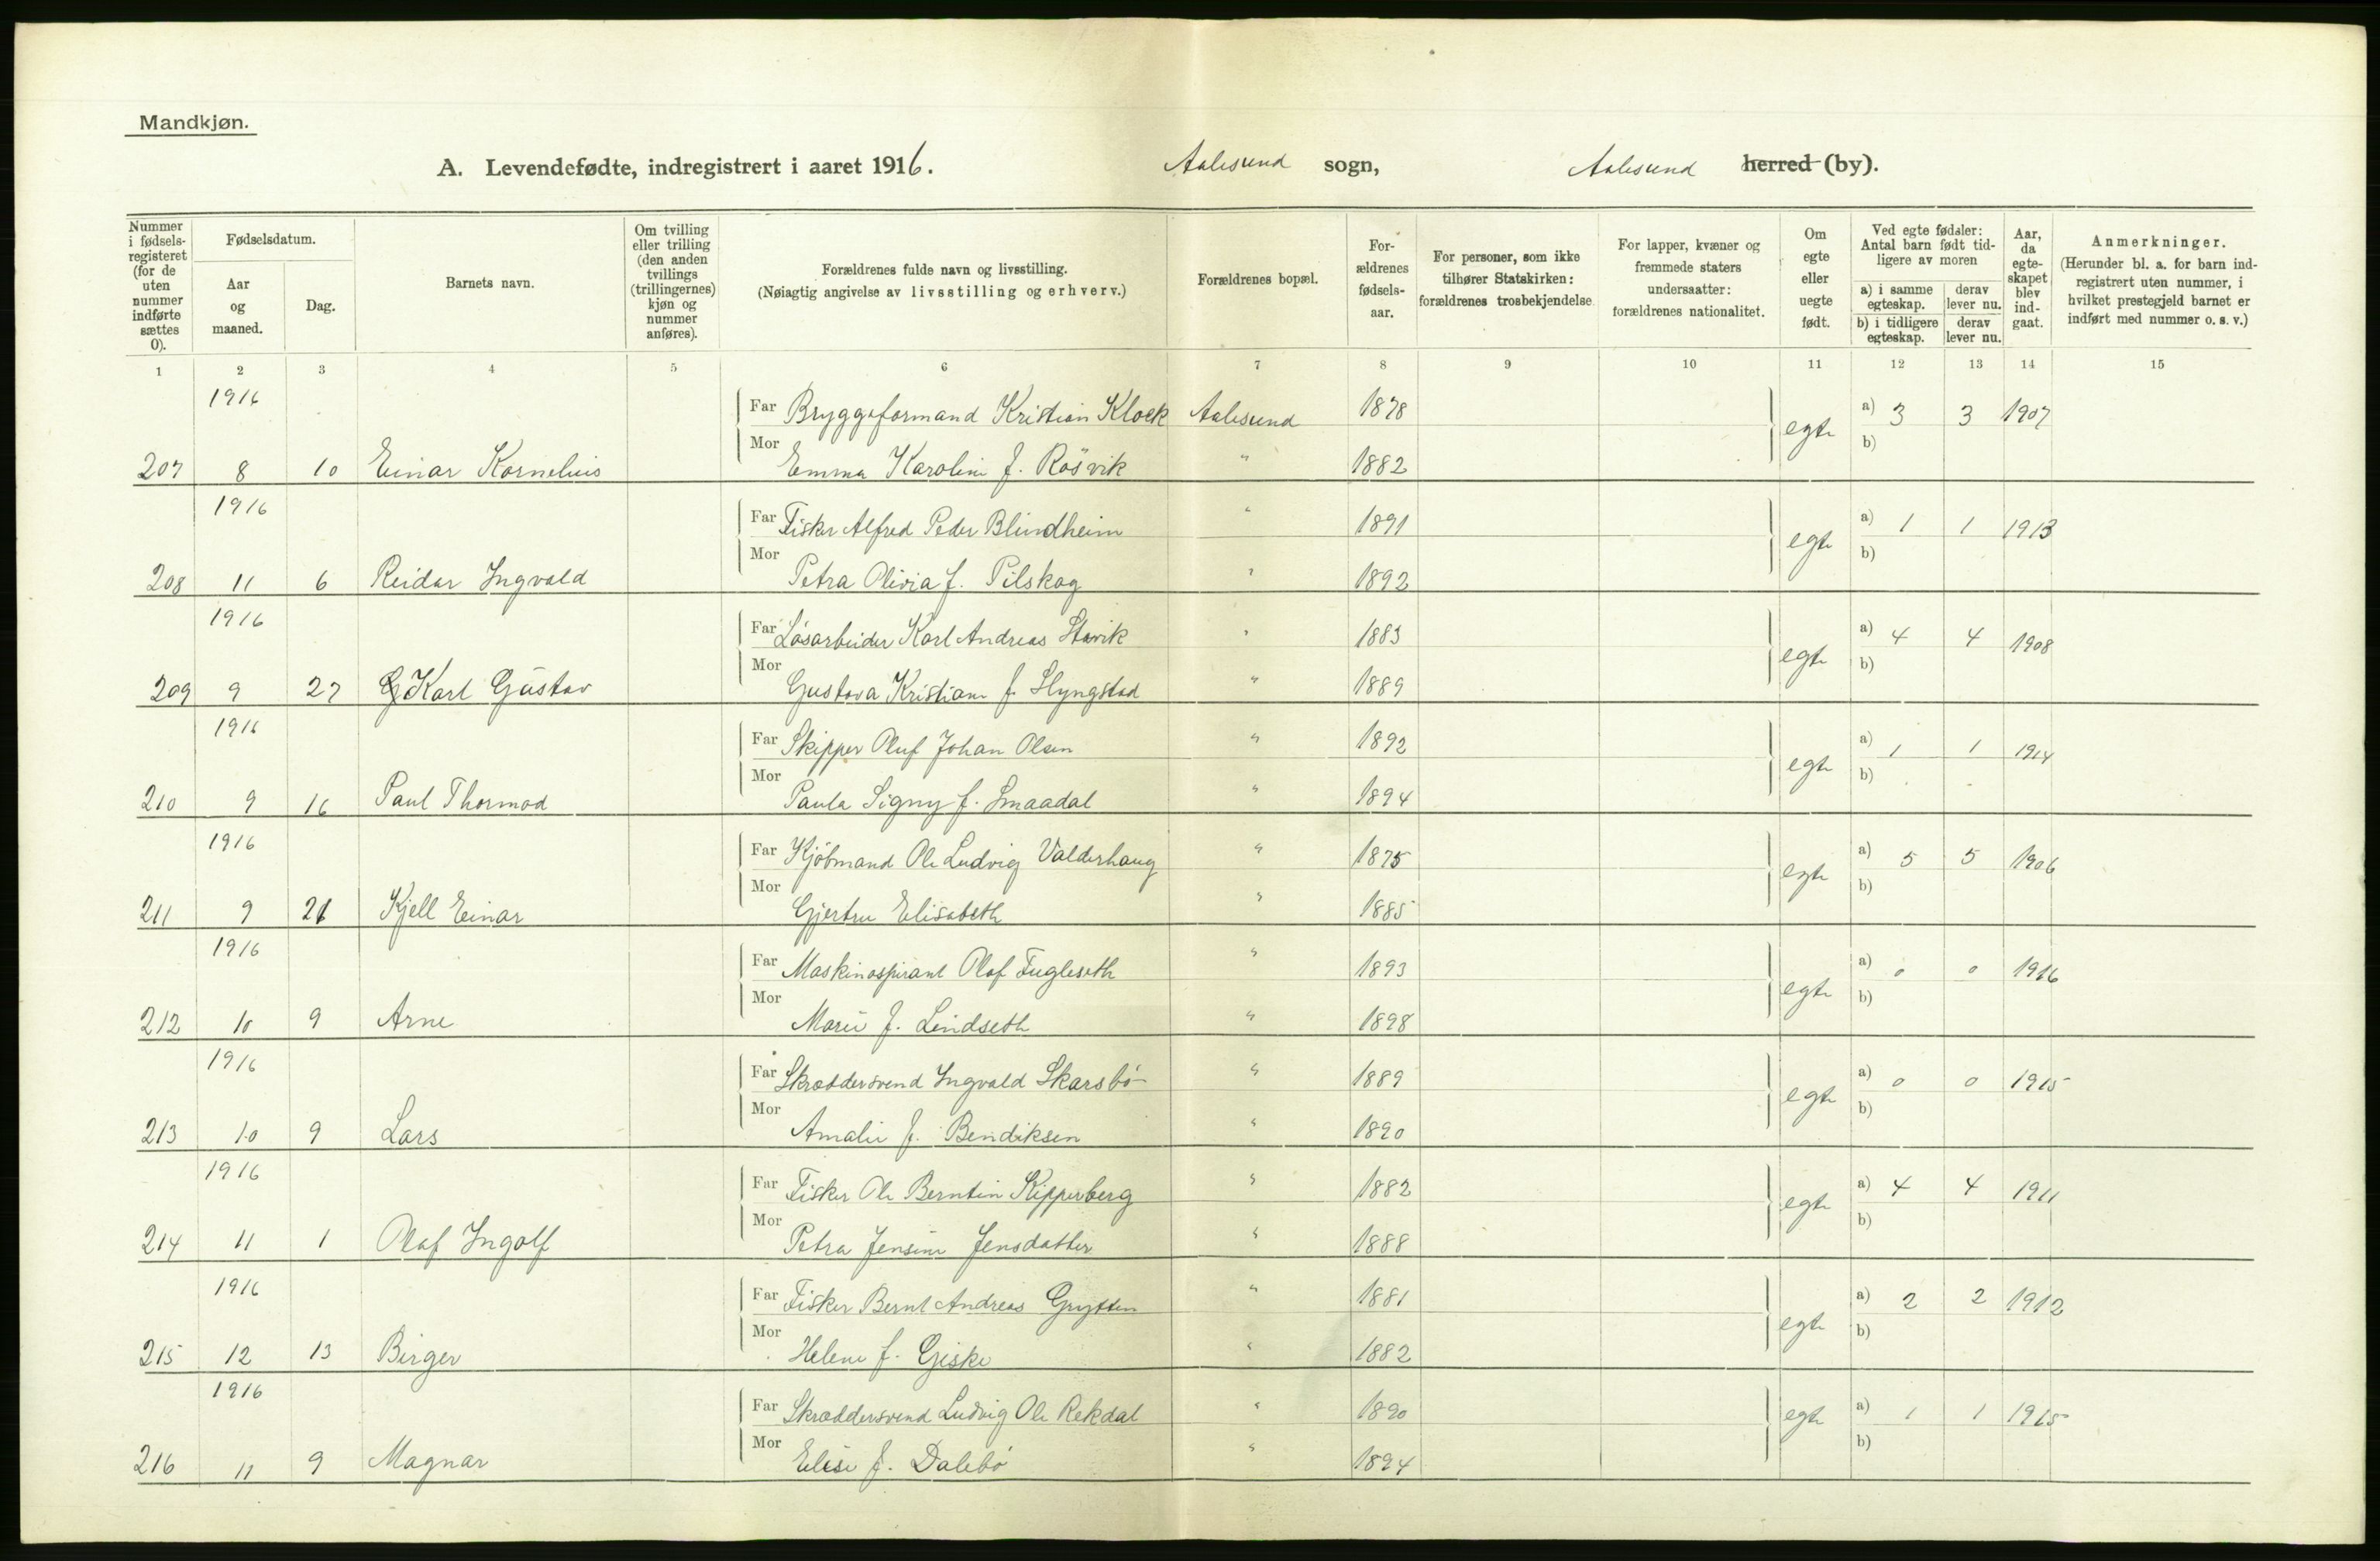 Mandkjøn.
A. Levendefødte, indregistrert i aaret 1916. Aalesund sogn, Aalesund herred (by).
Nummer i fødselsregisteret (for de uten nummer indførte sættes 0).
Fødselsdatum.
Aar og maaned.
Dag.
Barnets navn.
Om tvilling eller trilling (den anden tvillings (trillingernes) kjøn og nummer anføres).
Forældrenes fulde navn og livsstilling.
(Nøiagtig angivelse av livsstilling og erhverv.)
Forældrenes bopæl.
Forældrenes fødselsaar.
For personer, som ikke tilhører Statskirken: forældrenes trosbekjendelse
For lapper, kvæner og fremmede staters undersaatter: forældrenes nationalitet.
Om egte eller uegte født.
Ved egte fødsler: Antal barn født tidligere av moren
a) i samme egteskap. derav lever nu.
b) i tidligere egteskap. derav lever nu.
Aar, da egteskapet blev indgaat.
Anmerkninger.
(Herunder bl. a. for barn indregistrert uten nummer, i hvilket prestegjeld barnet er indført med nummer o. s. v.)
1 2 3 4 5 6 7 8 9 10 11 12 13 14 15
1916 Far Bryggeformand Kristian Klock Aalesund 1878 egte a) 3 3 1907
207 8 10 Einar Kornelius Mor Emma Karoline f. Røsvik " 1882 b)
1916 Far Fisker Alfred Peder Blindheim " 1891 egte a) 1 1 1913
208 11 6 Reidar Ingvald Mor Petra Olivia f. Pilskog " 1892 b)
1916 Far Løsarbeider Karl Andreas Stavik " 1883 egte a) 4 4 1908
209 9 27 Karl Gustav Mor Gustava Kristiane f. Slyngstad " 1889 b)
1916 Far Skipper Oluf Johan Olsen " 1892 egte a) 1 1 1914
210 9 16 Paul Thormod Mor Paula Signy f. Smaadal " 1894 b)
1916 Far Kjøbmand Ole Ludvig Valderhaug " 1875 egte a) 5 5 1906
211 9 21 Kjell Einar Mor Gjertru Elisabeth " 1885 b)
1916 Far Maskinaspirant Olaf Fugleseth " 1893 egte a) 0 0 1916
212 10 9 Arne Mor Marie f. Lindseth " 1898 b)
1916 Far Skræddersvend Ingvald Skarsbø " 1889 egte a) 0 0 1915
213 10 9 Lars Mor Amalie f. Bendiksen " 1890 b)
1916 Far Fisker Ole Berntin Kipperberg " 1882 egte a) 4 4 1911
214 11 1 Olaf Ingolf Mor Petra Jensine Jensdatter " 1888 b)
1916 Far Fisker Bernt Andreas Grytten " 1881 egte a) 2 2 1912
215 12 13 Birger Mor Helene f. Giske " 1882 b)
1916 Far Skræddersvend Ludvig Ole Rekdal " 1890 egte a) 1 1 1915
216 11 9 Magnar Mor Elise f. Dalebø " 1894 b)